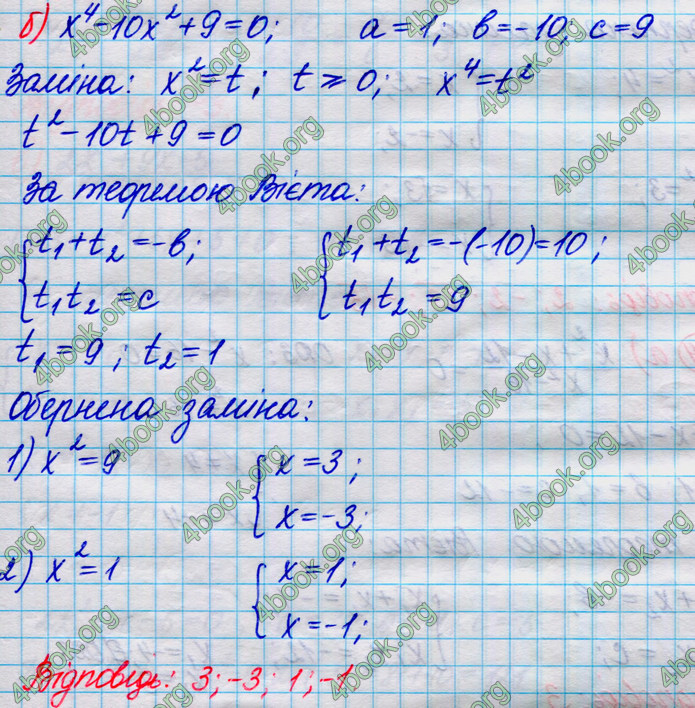 б) x⁴-10x²+9=0; a=1; b=-10; c=9
Заміна: x²=t; t≥0; x⁴=t²
t²-10t+9=0
За теоремою Вієта:
{t₁+t₂=-b; {t₁+t₂=-(-10)=10;
t₁t₂=c t₁t₂=9
t₁=9; t₂=1
Обернена заміна:
1) x²=9 {x=3;
x=-3;
2) x²=1 {x=1;
x=-1;
Відповідь: 3; -3; 1; -1
4book.org